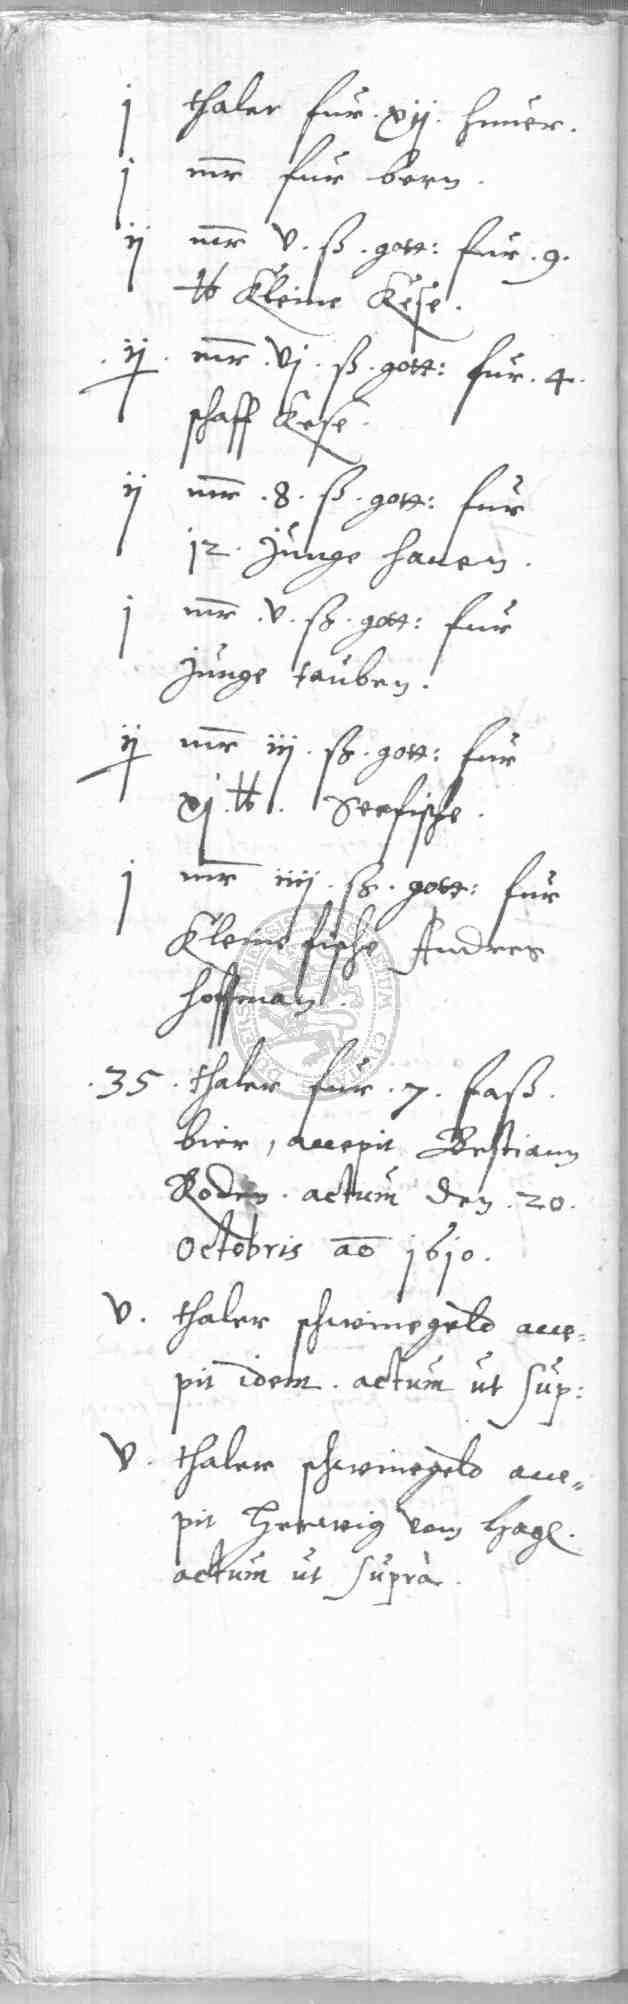 j thaler fur xij. huner.
j mr fur bern.
ij mr v. ß. gott: fur . 9.
℔ Kleine Kese.
. ij . mr . vj . ß . gott: fur . 4.
schaff Kese.
ij mr . 8 . ß . gott: fur
j2 . junge hanen.
j mr . v . ß . gott: fur
junge tauben.
ij mr iij . ß . gott: fur
xj ℔. Seefische.
j mr iiij . ß . gott: fur
Kleine fische Andres
hoffman.
. 35 . thaler fur . 7 . faß
bier, accepit Bestiann
Roden . actum den . 20.
Octobris ao j6j0.
v . thaler schwinegeld acce=
pit idem . actum ut sup:
v . thaler schwinegeld acce=
pit Herwig vom Hage.
actum ut supra.